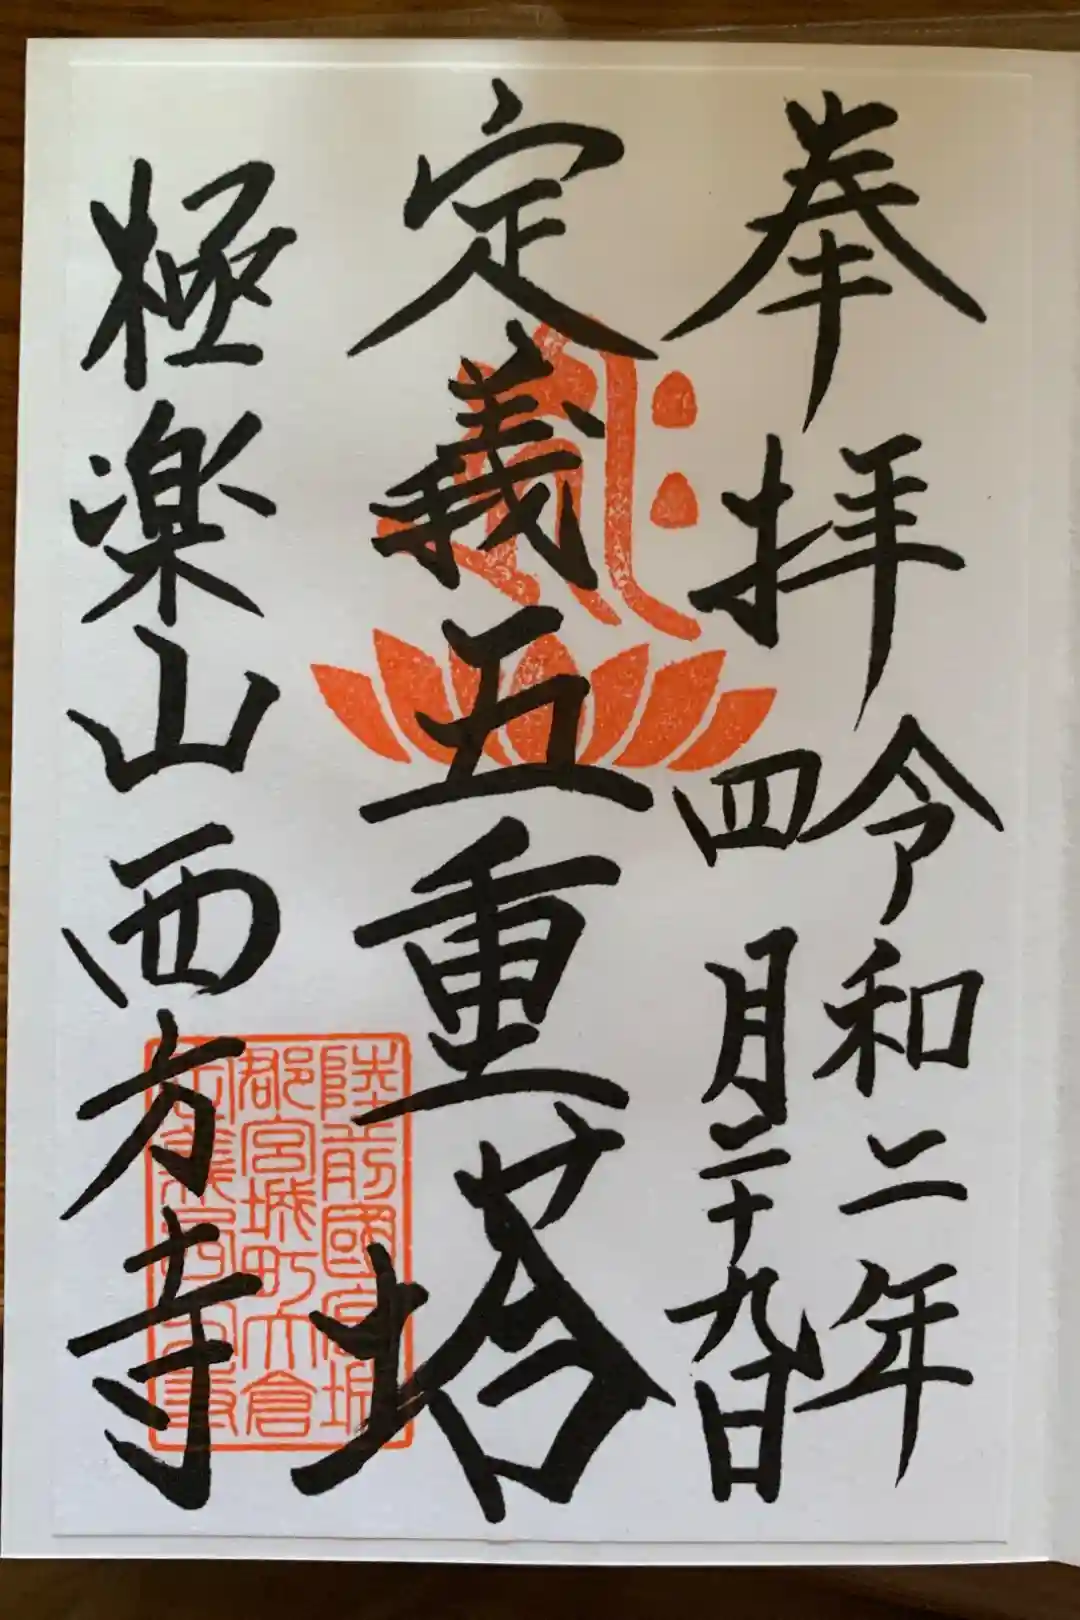 奉拝
令和二年
四月二十九日
定義五重塔
極楽山西方寺
陸前國宮城
郡宮城町大倉